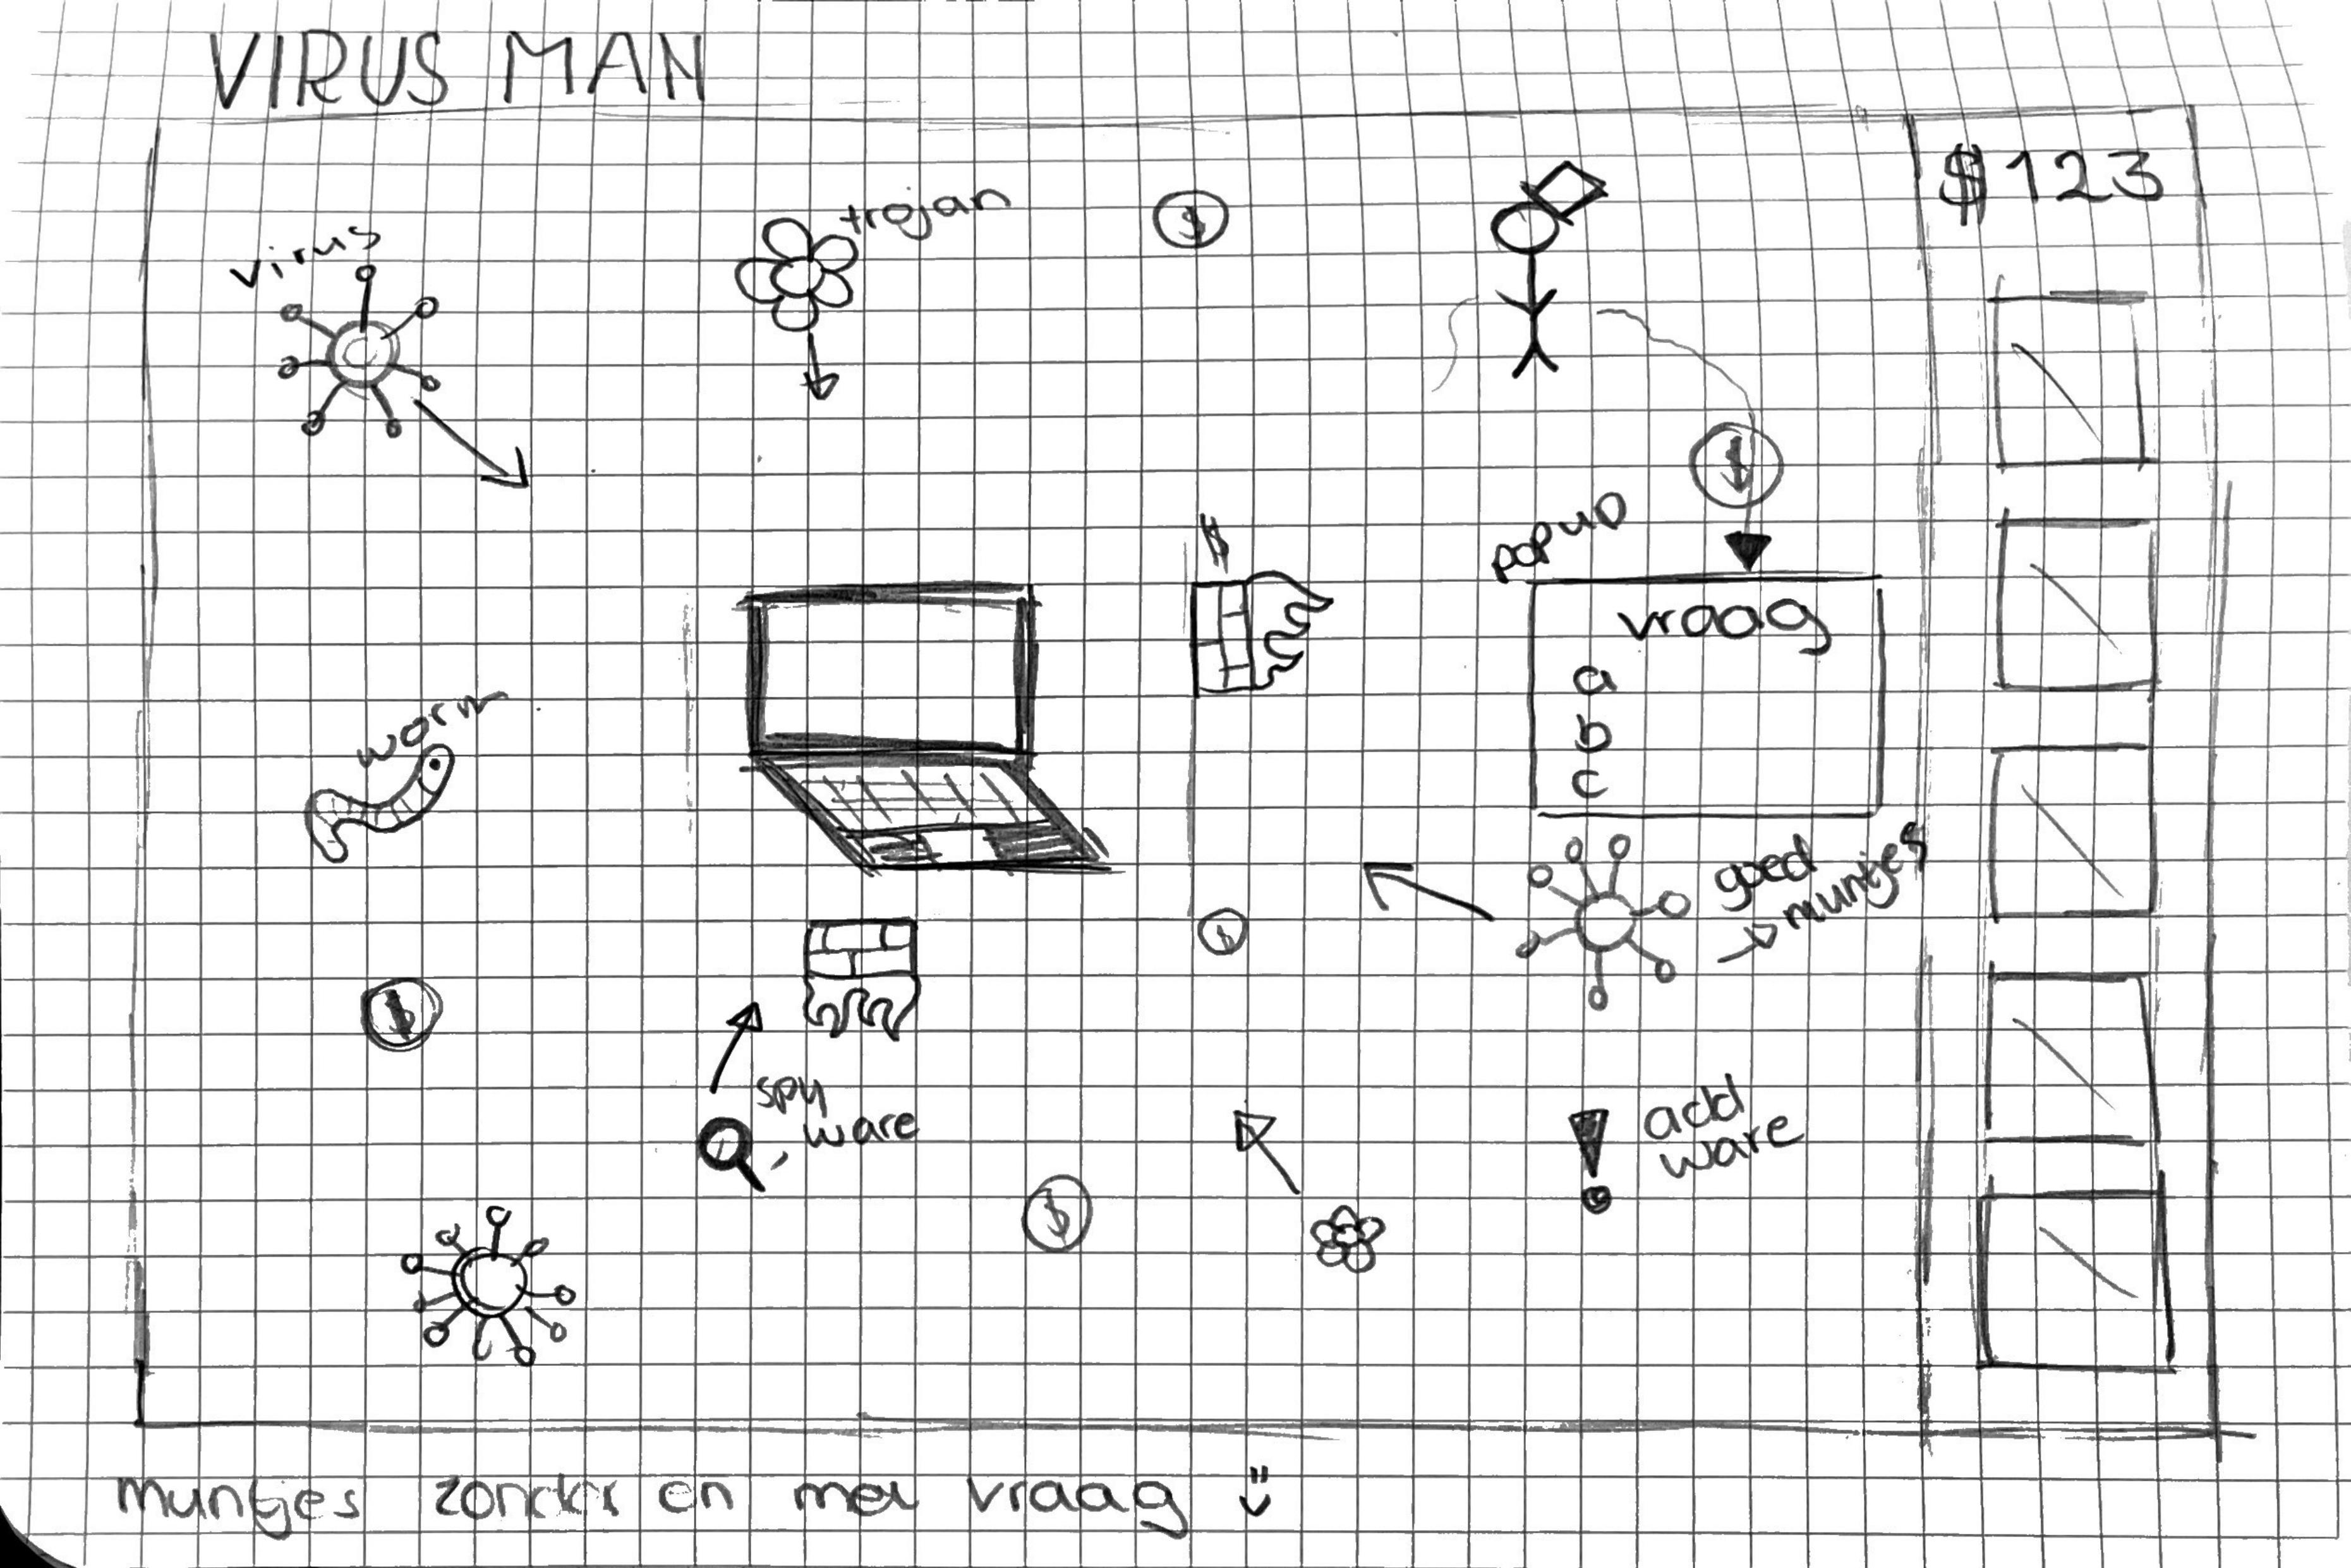 VIRUS MAN
$123
virus
trojan
$
$
$
popup
vraag
a
b
c
worm
goed
→ muntjes
$
$
spy
ware
add
ware
$
muntjes zonder en met vraag